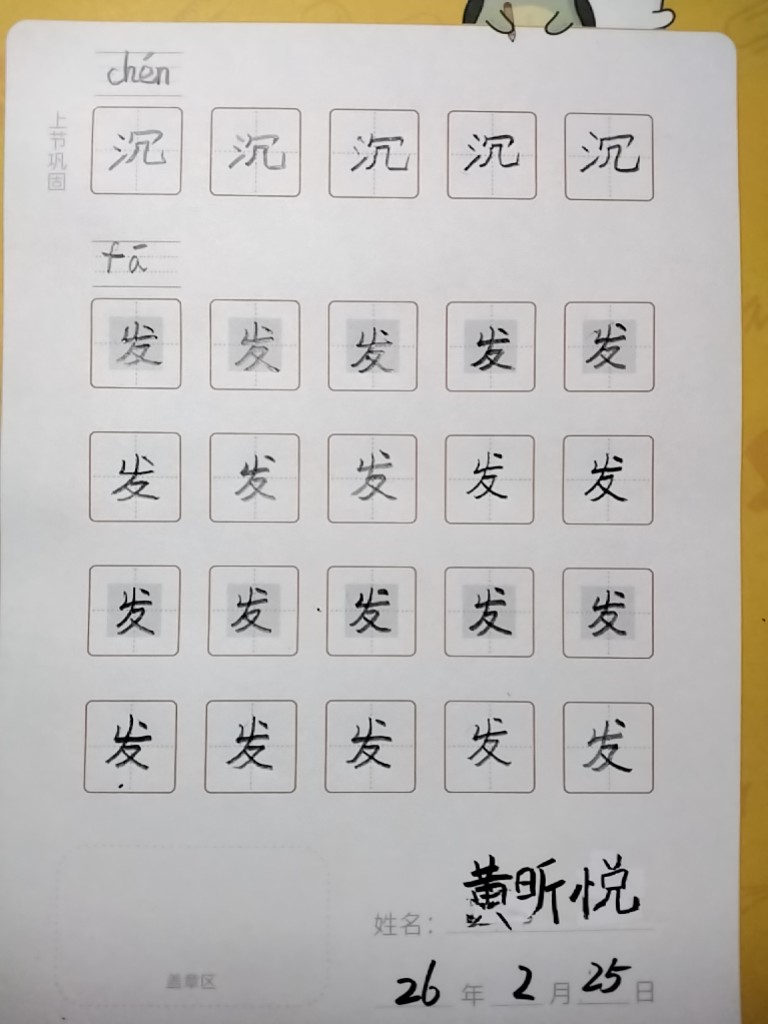 chén
上节巩固
沉 沉 沉 沉 沉
fā
发 发 发 发 发
发 发 发 发 发
发 发 发 发 发
发 发 发 发 发
姓名：黄昕悦
盖章区
26 年 2 月 25 日